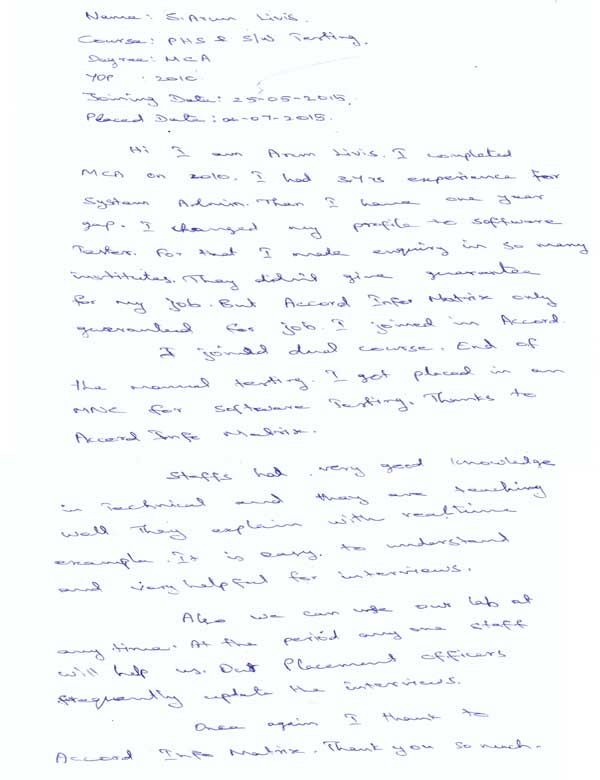 Name: S. Arun Livis.
Course: PHS & S/W Testing.
Degree: MCA
YOP : 2010
Joining Date: 25-05-2015.
Placed Date: 02-07-2015.
Hi I am Arun Livis. I completed
MCA on 2010. I had 3 Yrs experience for
System Admin. Then I have one year
gap. I changed my profile to software
Tester. For that I made enquiry in so many
institutes. They didn't give guarantee
for my job. But Accord Info Matrix only
guaranteed for job. I joined in Accord.
I joined dual course. End of
the manual testing. I got placed in an
MNC for Software Testing. Thanks to
Accord Info Matrix.
Staffs had very good knowledge
in Technical and they are teaching
well They explain with realtime
example. It is easy. to understand
and very helpful for interviews.
Also we can use our lab at
any time. At the period any one staff
will help us. Placement officers
frequently update the interviews.
Once again I thank to
Accord Info Matrix. Thank you so much.